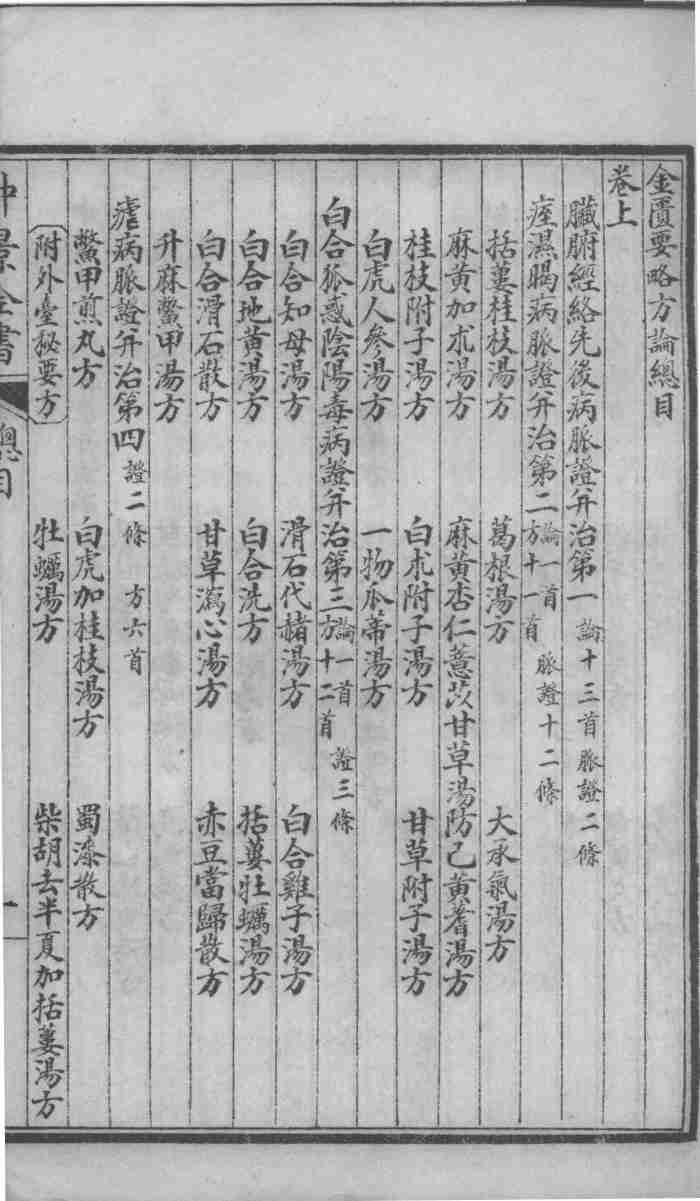 金匱要略方論總目
卷上
臟腑經絡先後病脈證并治第一 論十三首脈證二條
痙濕暍病脈證并治第二 論一首 脈證十二條 方十一首
括蔞桂枝湯方 葛根湯方 大承氣湯方
麻黃加朮湯方 麻黃杏仁薏苡甘草湯方 防己黃蓍湯方
桂枝附子湯方 白朮附子湯方 甘草附子湯方
白虎人參湯方 一物瓜蒂湯方
白合狐惑陰陽毒病證并治第三 論一首 證三條 方十二首
白合知母湯方 滑石代赭湯方 白合雞子湯方
白合地黃湯方 白合洗方 括蔞牡蠣湯方
白合滑石散方 甘草瀉心湯方 赤豆當歸散方
升麻鱉甲湯方
瘧病脈證并治第四 證二條 方六首
鱉甲煎丸方 白虎加桂枝湯方 蜀漆散方
附外臺秘要方 牡蠣湯方 柴胡去半夏加括蔞湯方
仲景全書 總目 一